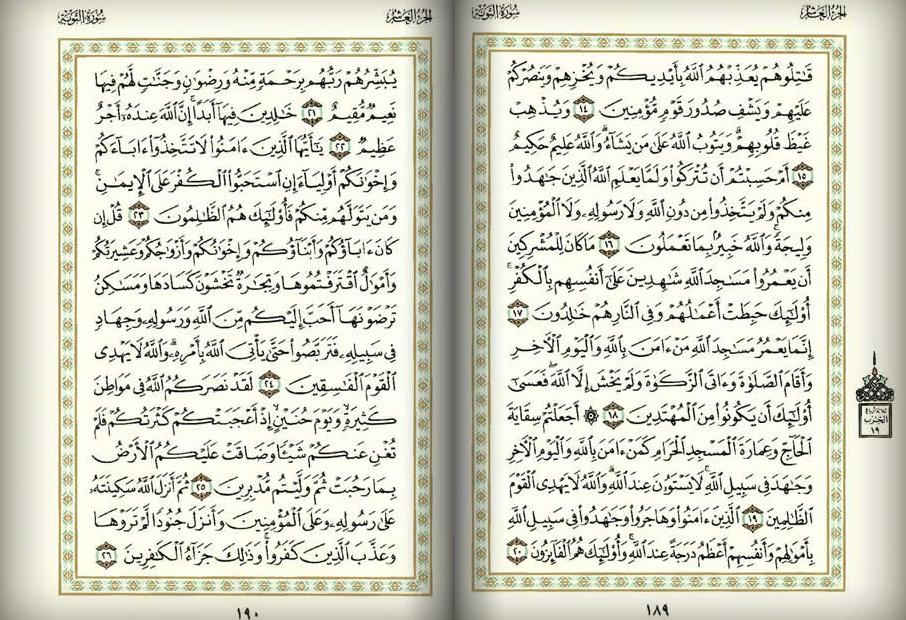 الجزء العاشر
سورة التوبة
قَٰتِلُوهُمْ يُعَذِّبْهُمُ ٱللَّهُ بِأَيْدِيكُمْ وَيُخْزِهِمْ وَيَنصُرْكُمْ
عَلَيْهِمْ وَيَشْفِ صُدُورَ قَوْمٍ مُّؤْمِنِينَ ١٤ وَيُذْهِبْ
غَيْظَ قُلُوبِهِمْ وَيَتُوبُ ٱللَّهُ عَلَىٰ مَن يَشَآءُ وَٱللَّهُ عَلِيمٌ حَكِيمٌ
١٥ أَمْ حَسِبْتُمْ أَن تُتْرَكُوا۟ وَلَمَّا يَعْلَمِ ٱللَّهُ ٱلَّذِينَ جَٰهَدُوا۟
مِنكُمْ وَلَمْ يَتَّخِذُوا۟ مِن دُونِ ٱللَّهِ وَلَا رَسُولِهِۦ وَلَا ٱلْمُؤْمِنِينَ
وَلِيجَةً وَٱللَّهُ خَبِيرٌۢ بِمَا تَعْمَلُونَ ١٦ مَا كَانَ لِلْمُشْرِكِينَ
أَن يَعْمُرُوا۟ مَسَٰجِدَ ٱللَّهِ شَٰهِدِينَ عَلَىٰٓ أَنفُسِهِم بِٱلْكُفْرِ
أُو۟لَٰٓئِكَ حَبِطَتْ أَعْمَٰلُهُمْ وَفِى ٱلنَّارِ هُمْ خَٰلِدُونَ ١٧
إِنَّمَا يَعْمُرُ مَسَٰجِدَ ٱللَّهِ مَنْ ءَامَنَ بِٱللَّهِ وَٱلْيَوْمِ ٱلْءَاخِرِ
وَأَقَامَ ٱلصَّلَوٰةَ وَءَاتَى ٱلزَّكَوٰةَ وَلَمْ يَخْشَ إِلَّا ٱللَّهَ فَعَسَىٰٓ
أُو۟لَٰٓئِكَ أَن يَكُونُوا۟ مِنَ ٱلْمُهْتَدِينَ ١٨ ۞ أَجَعَلْتُمْ سِقَايَةَ
ٱلْحَآجِّ وَعِمَارَةَ ٱلْمَسْجِدِ ٱلْحَرَامِ كَمَنْ ءَامَنَ بِٱللَّهِ وَٱلْيَوْمِ ٱلْءَاخِرِ
وَجَٰهَدَ فِى سَبِيلِ ٱللَّهِ لَا يَسْتَوُۥنَ عِندَ ٱللَّهِ وَٱللَّهُ لَا يَهْدِى ٱلْقَوْمَ
ٱلظَّٰلِمِينَ ١٩ ٱلَّذِينَ ءَامَنُوا۟ وَهَاجَرُوا۟ وَجَٰهَدُوا۟ فِى سَبِيلِ ٱللَّهِ
بِأَمْوَٰلِهِمْ وَأَنفُسِهِمْ أَعْظَمُ دَرَجَةً عِندَ ٱللَّهِ وَأُو۟لَٰٓئِكَ هُمُ ٱلْفَآئِزُونَ ٢٠
الحزب
١٩
١٨٩
الجزء العاشر
سورة التوبة
يُبَشِّرُهُمْ رَبُّهُم بِرَحْمَةٍ مِّنْهُ وَرِضْوَٰنٍ وَجَنَّٰتٍ لَّهُمْ فِيهَا
نَعِيمٌ مُّقِيمٌ ٢١ خَٰلِدِينَ فِيهَآ أَبَدًا إِنَّ ٱللَّهَ عِندَهُۥٓ أَجْرٌ
عَظِيمٌ ٢٢ يَٰٓأَيُّهَا ٱلَّذِينَ ءَامَنُوا۟ لَا تَتَّخِذُوٓا۟ ءَابَآءَكُمْ
وَإِخْوَٰنَكُمْ أَوْلِيَآءَ إِنِ ٱسْتَحَبُّوا۟ ٱلْكُفْرَ عَلَى ٱلْإِيمَٰنِ
وَمَن يَتَوَلَّهُم مِّنكُمْ فَأُو۟لَٰٓئِكَ هُمُ ٱلظَّٰلِمُونَ ٢٣ قُلْ إِن
كَانَ ءَابَآؤُكُمْ وَأَبْنَآؤُكُمْ وَإِخْوَٰنُكُمْ وَأَزْوَٰجُكُمْ وَعَشِيرَتُكُمْ
وَأَمْوَٰلٌ ٱقْتَرَفْتُمُوهَا وَتِجَٰرَةٌ تَخْشَوْنَ كَسَادَهَا وَمَسَٰكِنُ
تَرْضَوْنَهَآ أَحَبَّ إِلَيْكُم مِّنَ ٱللَّهِ وَرَسُولِهِۦ وَجِهَادٍ
فِى سَبِيلِهِۦ فَتَرَبَّصُوا۟ حَتَّىٰ يَأْتِىَ ٱللَّهُ بِأَمْرِهِۦ وَٱللَّهُ لَا يَهْدِى
ٱلْقَوْمَ ٱلْفَٰسِقِينَ ٢٤ لَقَدْ نَصَرَكُمُ ٱللَّهُ فِى مَوَاطِنَ
كَثِيرَةٍ وَيَوْمَ حُنَيْنٍ إِذْ أَعْجَبَتْكُمْ كَثْرَتُكُمْ فَلَمْ
تُغْنِ عَنكُمْ شَيْـًٔا وَضَاقَتْ عَلَيْكُمُ ٱلْأَرْضُ
بِمَا رَحُبَتْ ثُمَّ وَلَّيْتُم مُّدْبِرِينَ ٢٥ ثُمَّ أَنزَلَ ٱللَّهُ سَكِينَتَهُۥ
عَلَىٰ رَسُولِهِۦ وَعَلَى ٱلْمُؤْمِنِينَ وَأَنزَلَ جُنُودًا لَّمْ تَرَوْهَا
وَعَذَّبَ ٱلَّذِينَ كَفَرُوا۟ وَذَٰلِكَ جَزَآءُ ٱلْكَٰفِرِينَ ٢٦
١٩٠